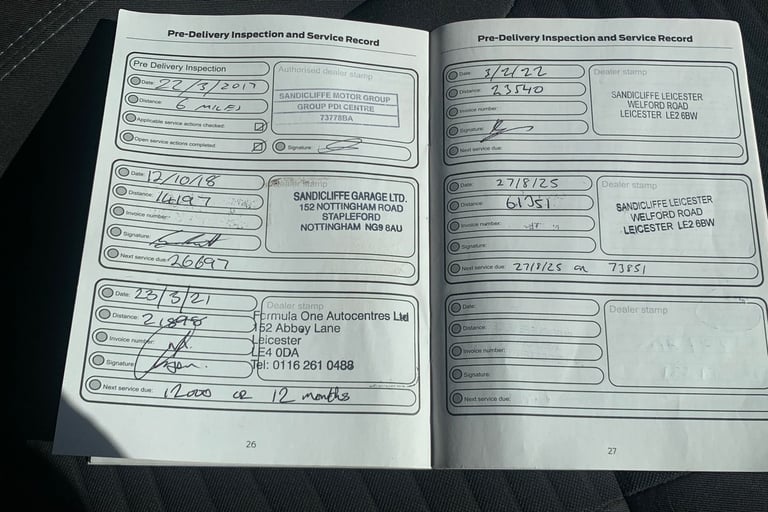 Pre-Delivery Inspection and Service Record
Pre Delivery Inspection
Date: 22/3/2017
Distance: 6 MILES
Applicable service actions checked:
Open service actions completed:
Authorised dealer stamp
SANDICLIFFE MOTOR GROUP
GROUP PDI CENTRE
73778BA
Signature:
Date: 12/10/18
Distance: 14197
Invoice number:
Signature:
Next service due: 26697
Dealer stamp
SANDICLIFFE GARAGE LTD.
152 NOTTINGHAM ROAD
STAPLEFORD
NOTTINGHAM NG9 8AU
Date: 23/3/21
Distance: 21898
Invoice number:
Signature:
Next service due: 12000 OR 12 months
Dealer stamp
Formula One Autocentres Ltd
152 Abbey Lane
Leicester
LE4 0DA
Tel: 0116 261 0488
26
Pre-Delivery Inspection and Service Record
Date: 3/2/22
Distance: 23540
Invoice number:
Signature:
Next service due:
Dealer stamp
SANDICLIFFE LEICESTER
WELFORD ROAD
LEICESTER LE2 6BW
Date: 27/8/25
Distance: 61351
Invoice number:
Signature:
Next service due: 27/8/25 or 73851
Dealer stamp
SANDICLIFFE LEICESTER
WELFORD ROAD
LEICESTER LE2 6BW
Date:
Distance:
Invoice number:
Signature:
Next service due:
Dealer stamp
27